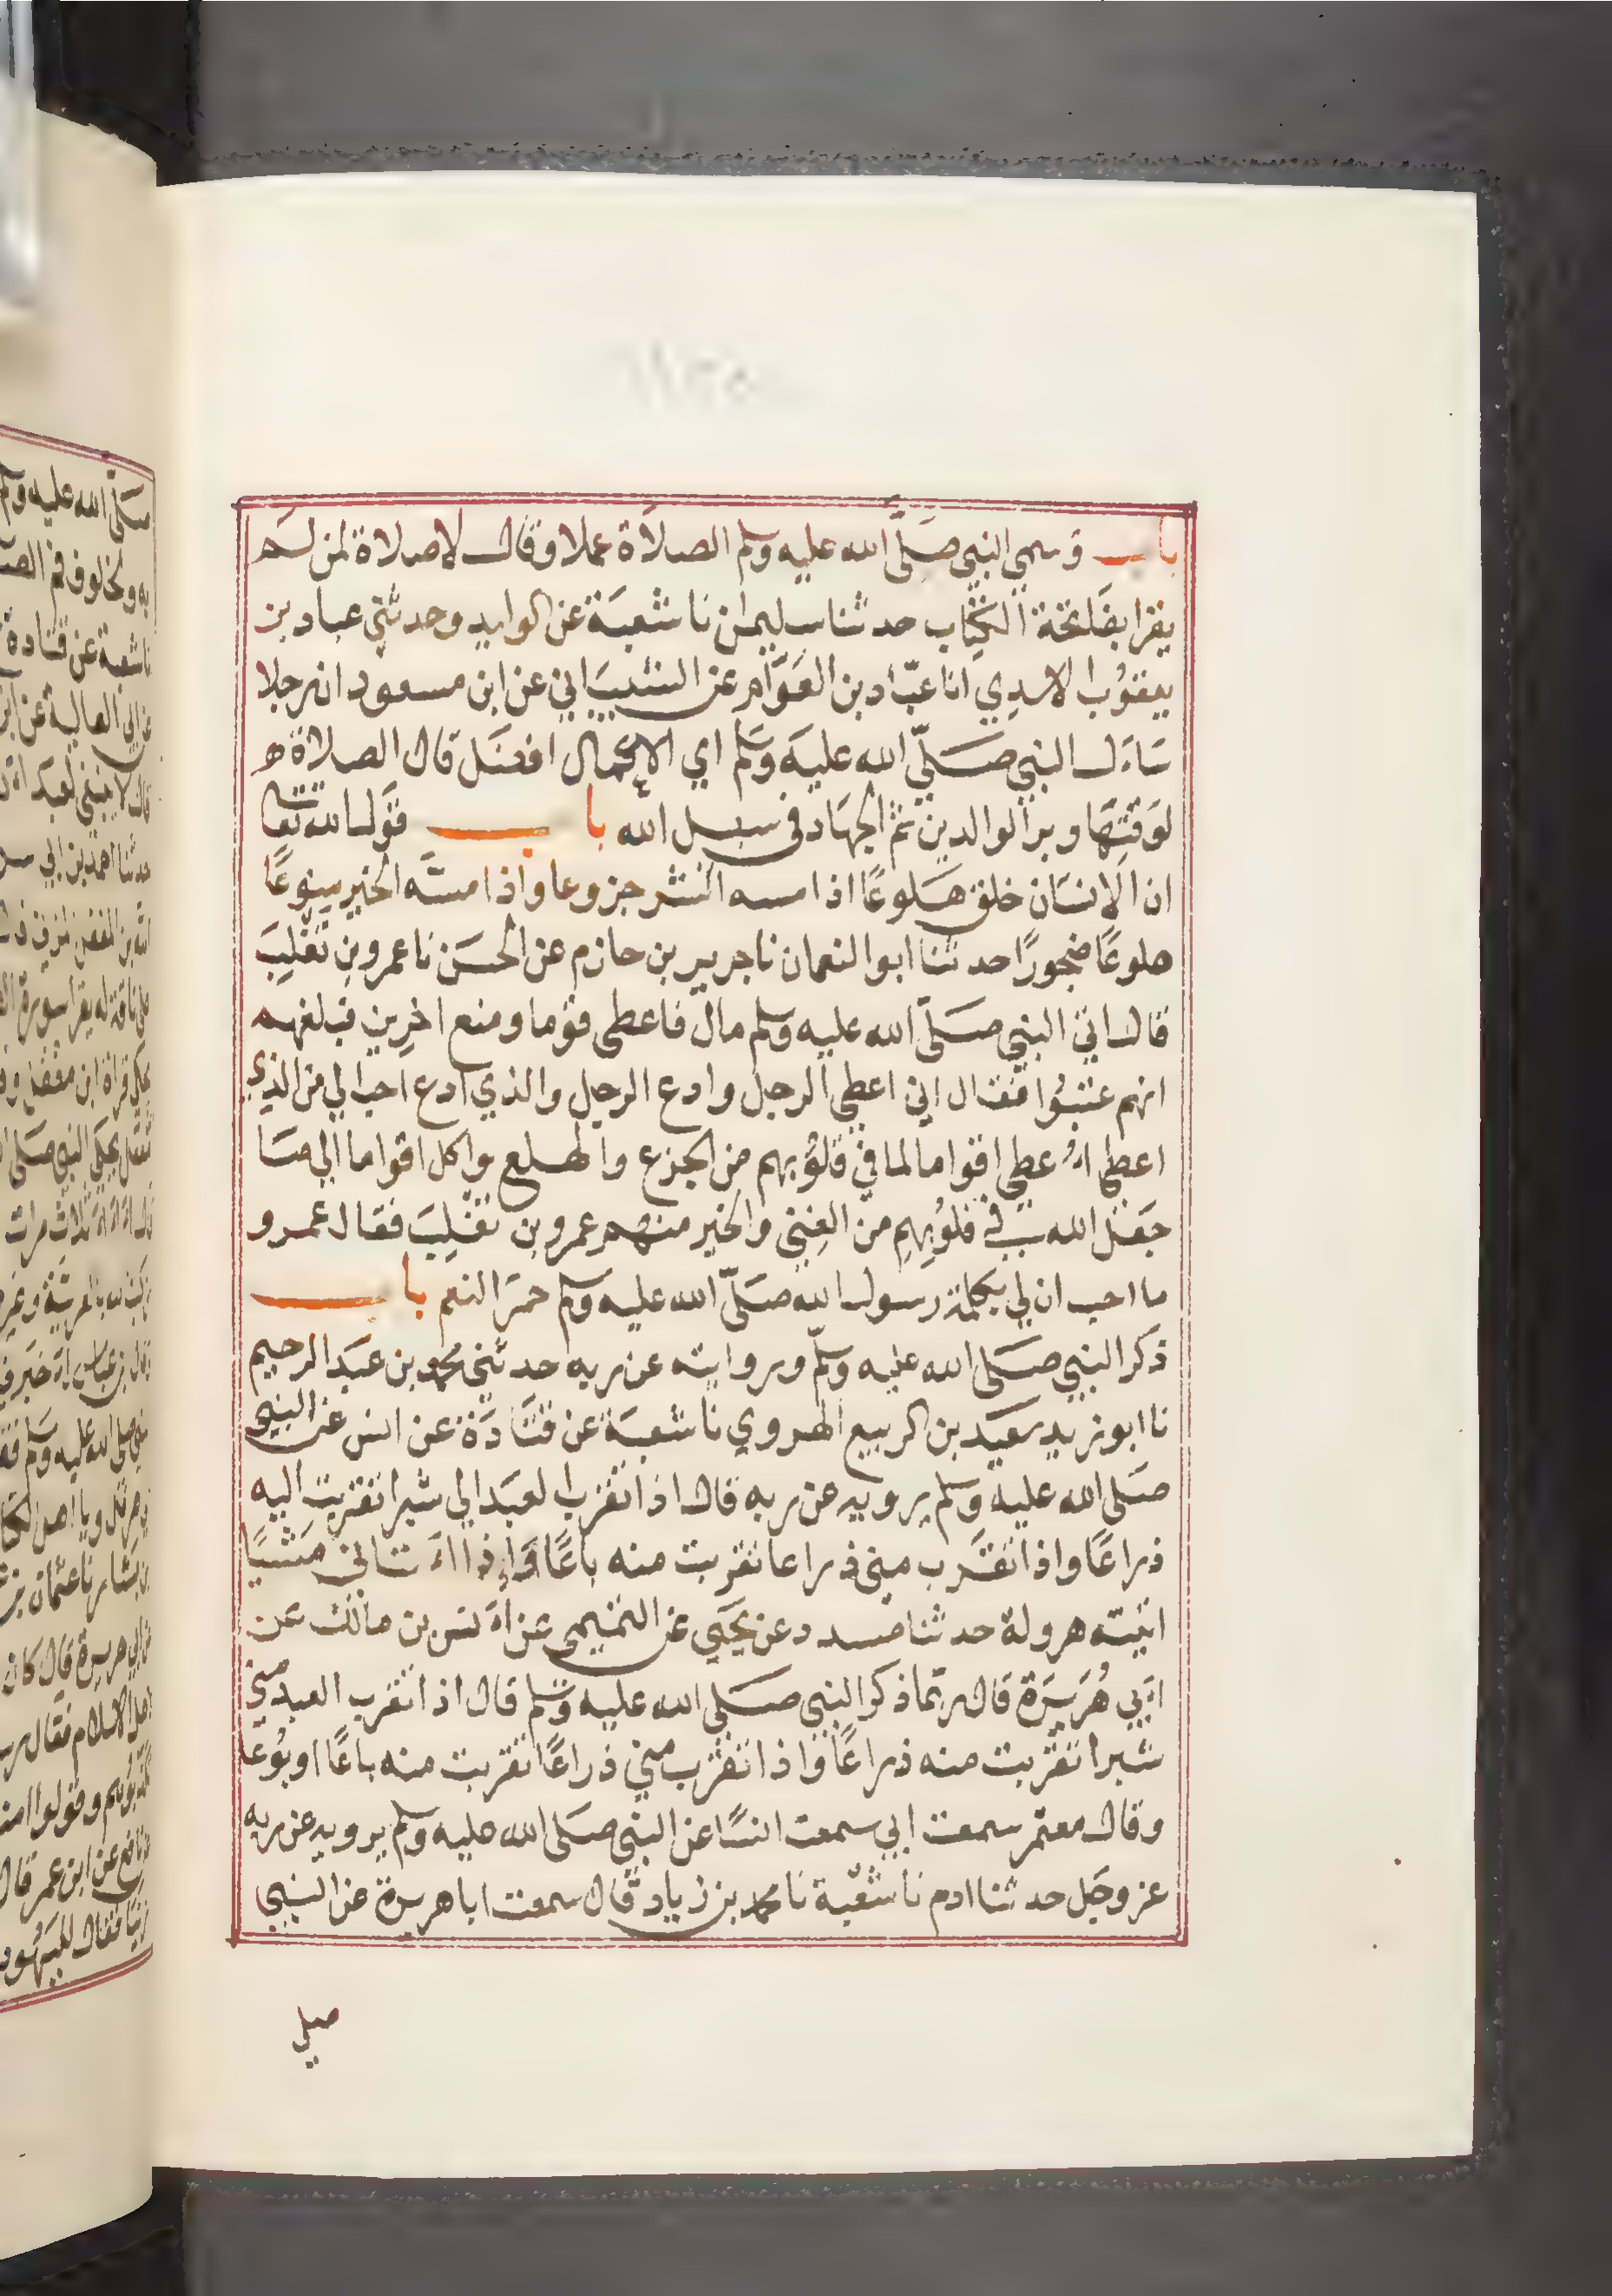 باب وَسمى النبي صَلَّى الله عليه وسلم الصلاة عملا وقال لا صلاة لمن لم
يقرا بفَاتحة الكِتَاب حدثنا سليمن نا شعبَة عن الوليد وحدثني عباد بن
يعقوُب الاسدي انا عبّاد بن العَوَّام عن الشيبَاني عن ابن مسعود ان رجلا
سَاءَل النبي صَلَّى الله عليَه وَسَلم اي الاعمال افضَل قال الصلاة ه
لوَقتِهَا وبر الوالدين ثم الجهَاد في سبيل الله باب قَول الله تعَا
ان الانسَان خلق هَلوعًا اذا مسه الشر جزوعا واذا مسَّه الخير منوعًا
هلوعًا ضجورًا حدثنا ابو النعمان نا جرير بن حازم عن الحسَن نا عمرو بن تغلِبَ
قال اتي النبي صَلَّى الله عليه وسلم مال فاعطى قوما ومنع اخرِين فبلغهم
انهم عتبُوا فقال اني اعطي الرجل وادع الرجل والذي ادع احب الي من الذي
اعطي اُءعطي اقواما لما في قلوُبهم من الجزع والهلع واكل اقواما الي مَا
جَعَل الله في قلوُبهِم من الغِنى والخير منهم عمرو بن تغلِبَ فقال عمرو
ما احب ان لي بكلمة رسول الله صَلَّى الله عليه وسلم حمرَ النعم باب
ذكر النبي صَلى الله عليه وسلّم وروايته عن ربه حدثني محمد بن عبَد الرحيم
نا ابو زيد سعَيد بن الربيع الهروي نا شعبَة عن قتَادَة عن انس عن النبي
صَلى الله عليه وسلم يرويه عن ربه قال اذا تقرب العبَد الي شبرا تقربت اليه
ذراعًا واذا تقرَب مني ذراعا تقربت منه باعًا وَاذا اءَتاني مَشيًا
اتيته هرولة حدثنا مسدد عن يحَيَي عن التيمي عن اءَنس بن مالك عن
اءَبي هُرَيرَة قال ربما ذكر النبي صَلى الله عليه وسَلم قال اذا تقرب العبد مني
شبرا تقربت منه ذراعًا وَاذا تقرب مني ذراعًا تقربت منه باعًا او بوُعًا
وقال معتمر سمعت ابي سمعت انسًا عن النبي صَلى الله عليه وسلم يرويه عن ربه
عز وجَل حدثنا ادم نا شعبَة نا محمد بن زياد قال سمعت ابا هريرة عن النبي
صلي